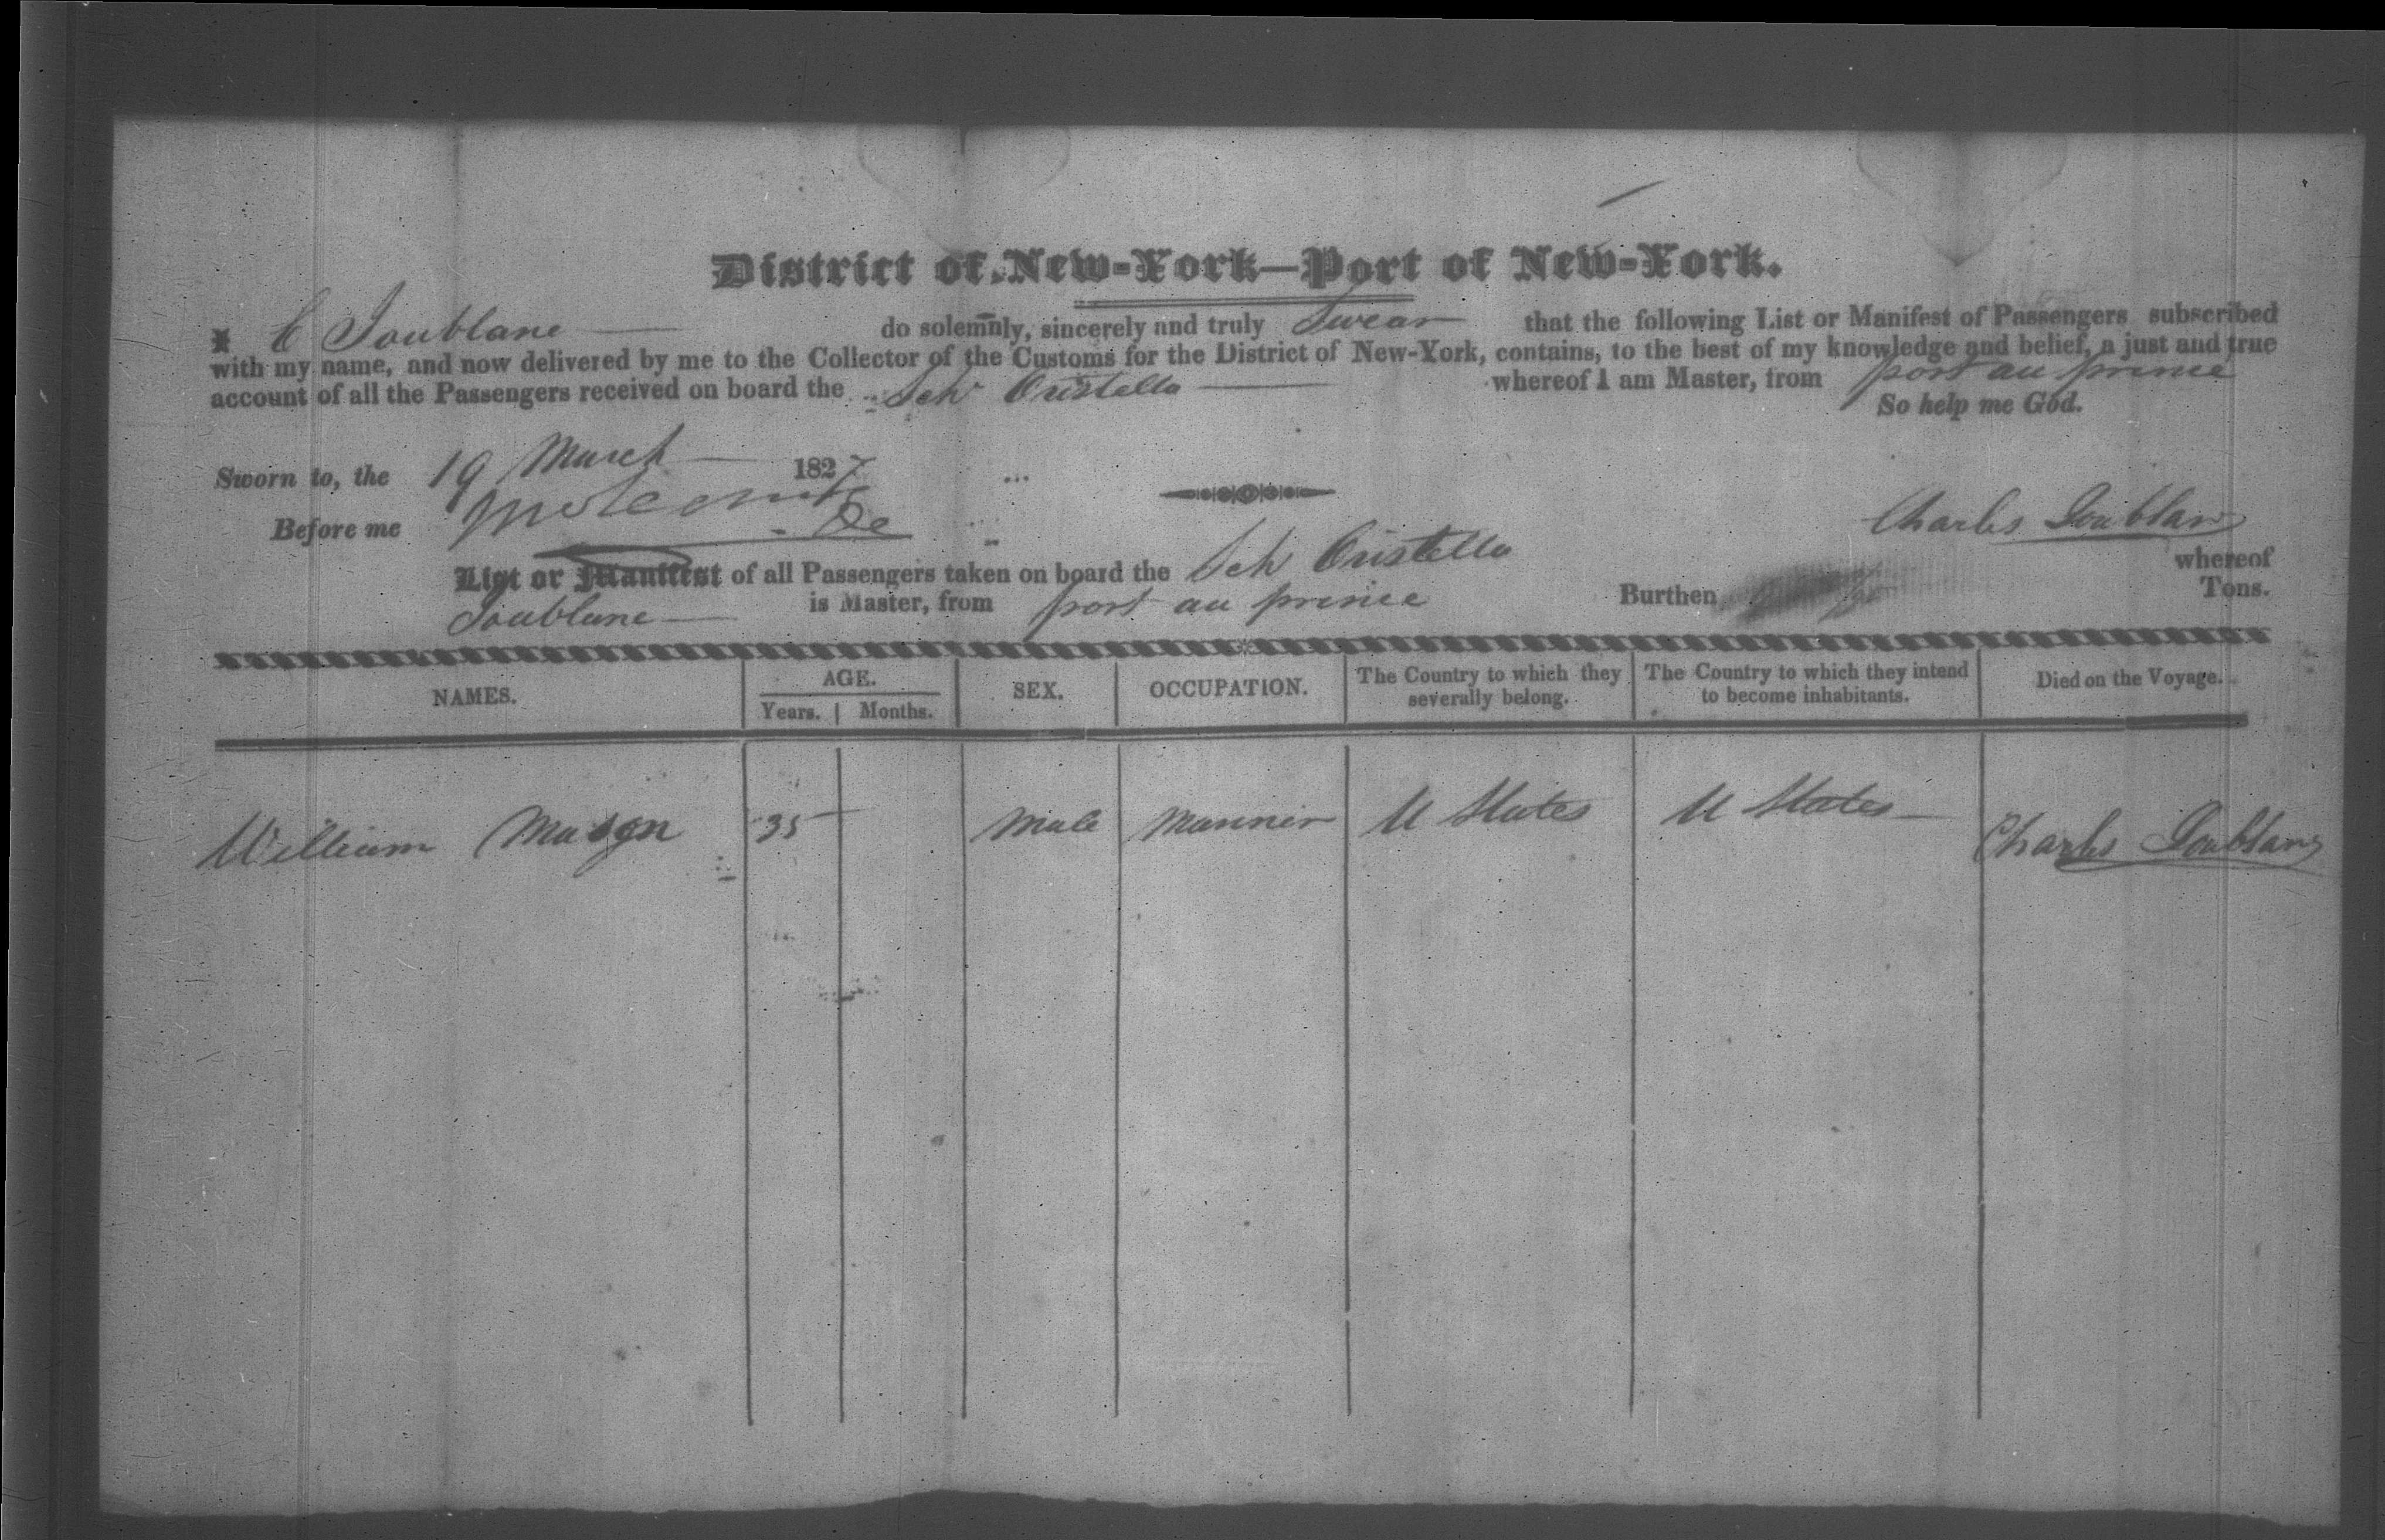 District of New-York—Port of New-York.
I C Joublanc do solemnly, sincerely and truly Swear that the following List or Manifest of Passengers subscribed
with my name, and now delivered by me to the Collector of the Customs for the District of New-York, contains, to the best of my knowledge and belief, a just and true
account of all the Passengers received on board the Sch Cristella whereof I am Master, from port au prince
So help me God.
Sworn to, the 19 March 1827
Before me
Charles Joublanc
List or Manifest of all Passengers taken on board the Sch Cristella whereof
Joublanc is Master, from port au prince Burthen Tons.
NAMES. AGE. SEX. OCCUPATION. The Country to which they severally belong. The Country to which they intend to become inhabitants. Died on the Voyage.
Years. Months.
William Mason 35 Male Mariner U States U States
Charles Joublanc